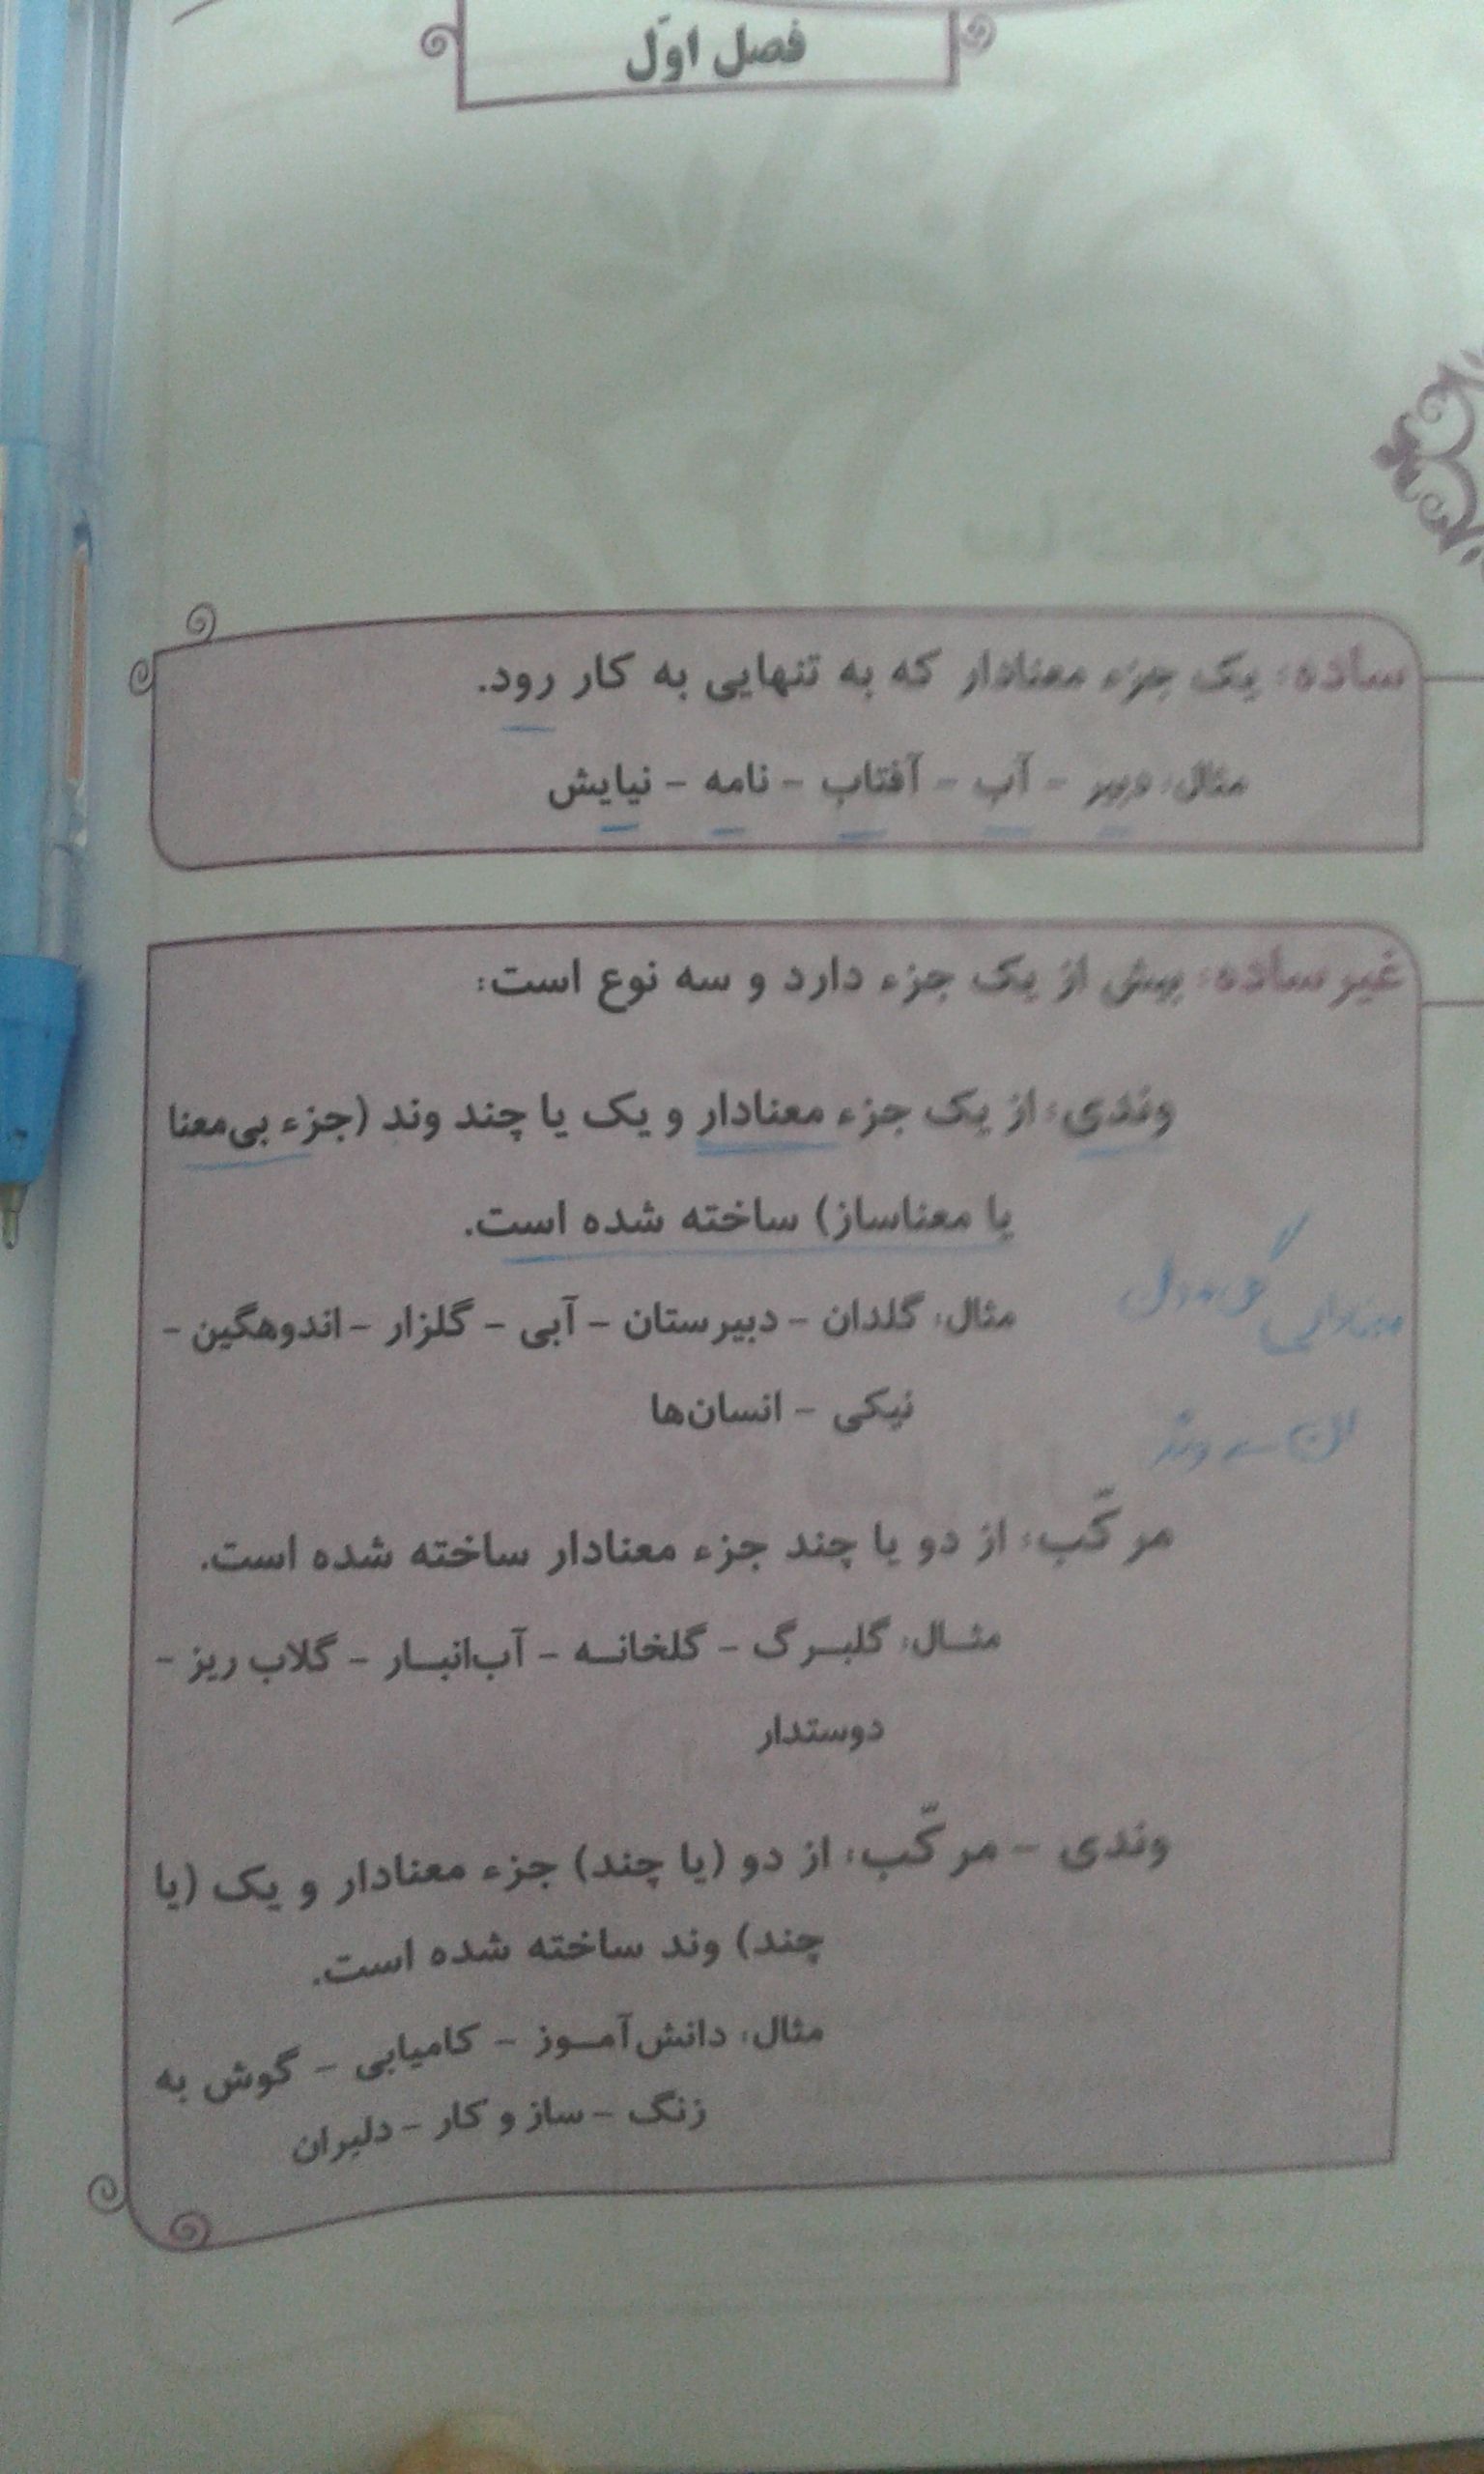 فصل اوّل
ساده: یک جزء معنادار که به تنهایی به کار رود.
مثال: دبیر - آب - آفتاب - نامه - نیایش
غیر ساده: بیش از یک جزء دارد و سه نوع است:
وندی: از یک جزء معنادار و یک یا چند وند (جزء بی‌معنا
یا معناساز) ساخته شده است.
مثال: گلدان - دبیرستان - آبی - گلزار - اندوهگین -
نیکی - انسان‌ها
مرکّب: از دو یا چند جزء معنادار ساخته شده است.
مثـال: گلبـرگ - گلخانـه - آب‌انبـار - گلاب ریز -
دوستدار
وندی - مرکّب: از دو (یا چند) جزء معنادار و یک (یا
چند) وند ساخته شده است.
مثال: دانش‌آمـوز - کامیابی - گوش به
زنگ - ساز و کار - دلیران